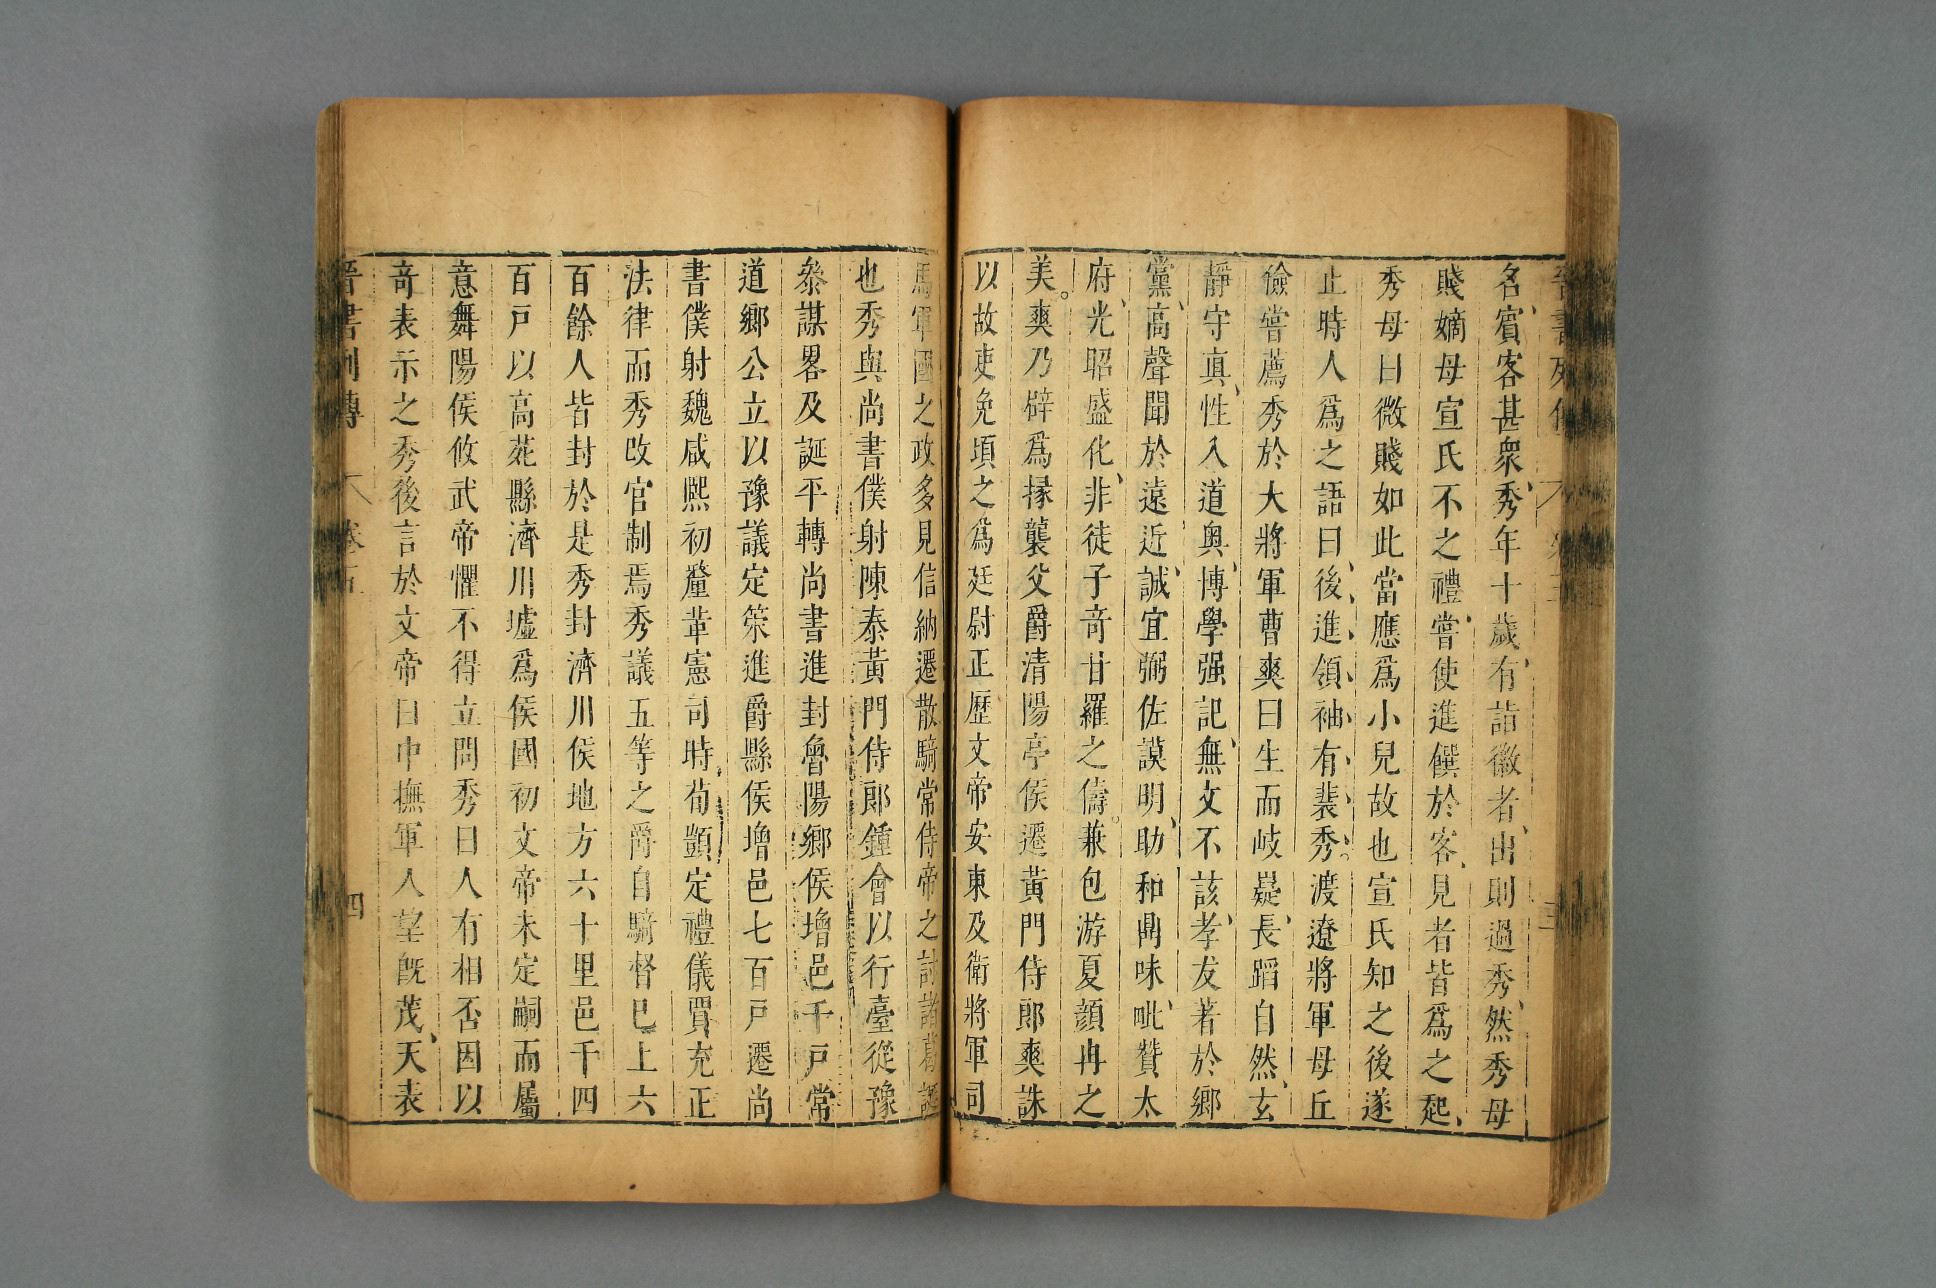 名賓客甚衆秀年十歲有詣徽者出則過秀然秀母
賤嫡母宣氏不之禮嘗使進饌於客見者皆爲之起
秀母曰微賤如此當應爲小兒故也宣氏知之後遂
止時人爲之語曰後進領袖有裴秀。渡遼將軍母丘
儉嘗薦秀於大將軍曹爽曰生而岐嶷長蹈自然玄
靜守真性入道奥博學强記無文不該孝友著於鄉
黨高聲聞於遠近誠宜弼佐謨明助和鼎味毗贊太
府光昭盛化非徒子竒甘羅之儔。兼包游夏顏冉之
美。爽乃辟爲掾襲父爵清陽亭侯遷黃門侍郎爽誅
以故吏免頃之爲廷尉正歷文帝安東及衛將軍司
馬軍國之政多見信納遷散騎常侍帝之討諸葛誕
也秀與尚書僕射陳泰黃門侍郎鍾會以行臺從豫
叅謀畧及誕平轉尚書進封魯陽鄉侯增邑千戸常
道鄉公立以豫議定策進爵縣侯增邑七百戸遷尚
書僕射魏咸熙初釐革憲司時荀顗定禮儀賈充正
法律而秀改官制焉秀議五等之爵自騎督已上六
百餘人皆封於是秀封濟川侯地方六十里邑千四
百戸以高苑縣濟川墟爲侯國初文帝未定嗣而屬
意舞陽侯攸武帝懼不得立問秀曰人有相否因以
竒表示之秀後言於文帝曰中撫軍人望旣茂天表
晉書列傳 卷五 四